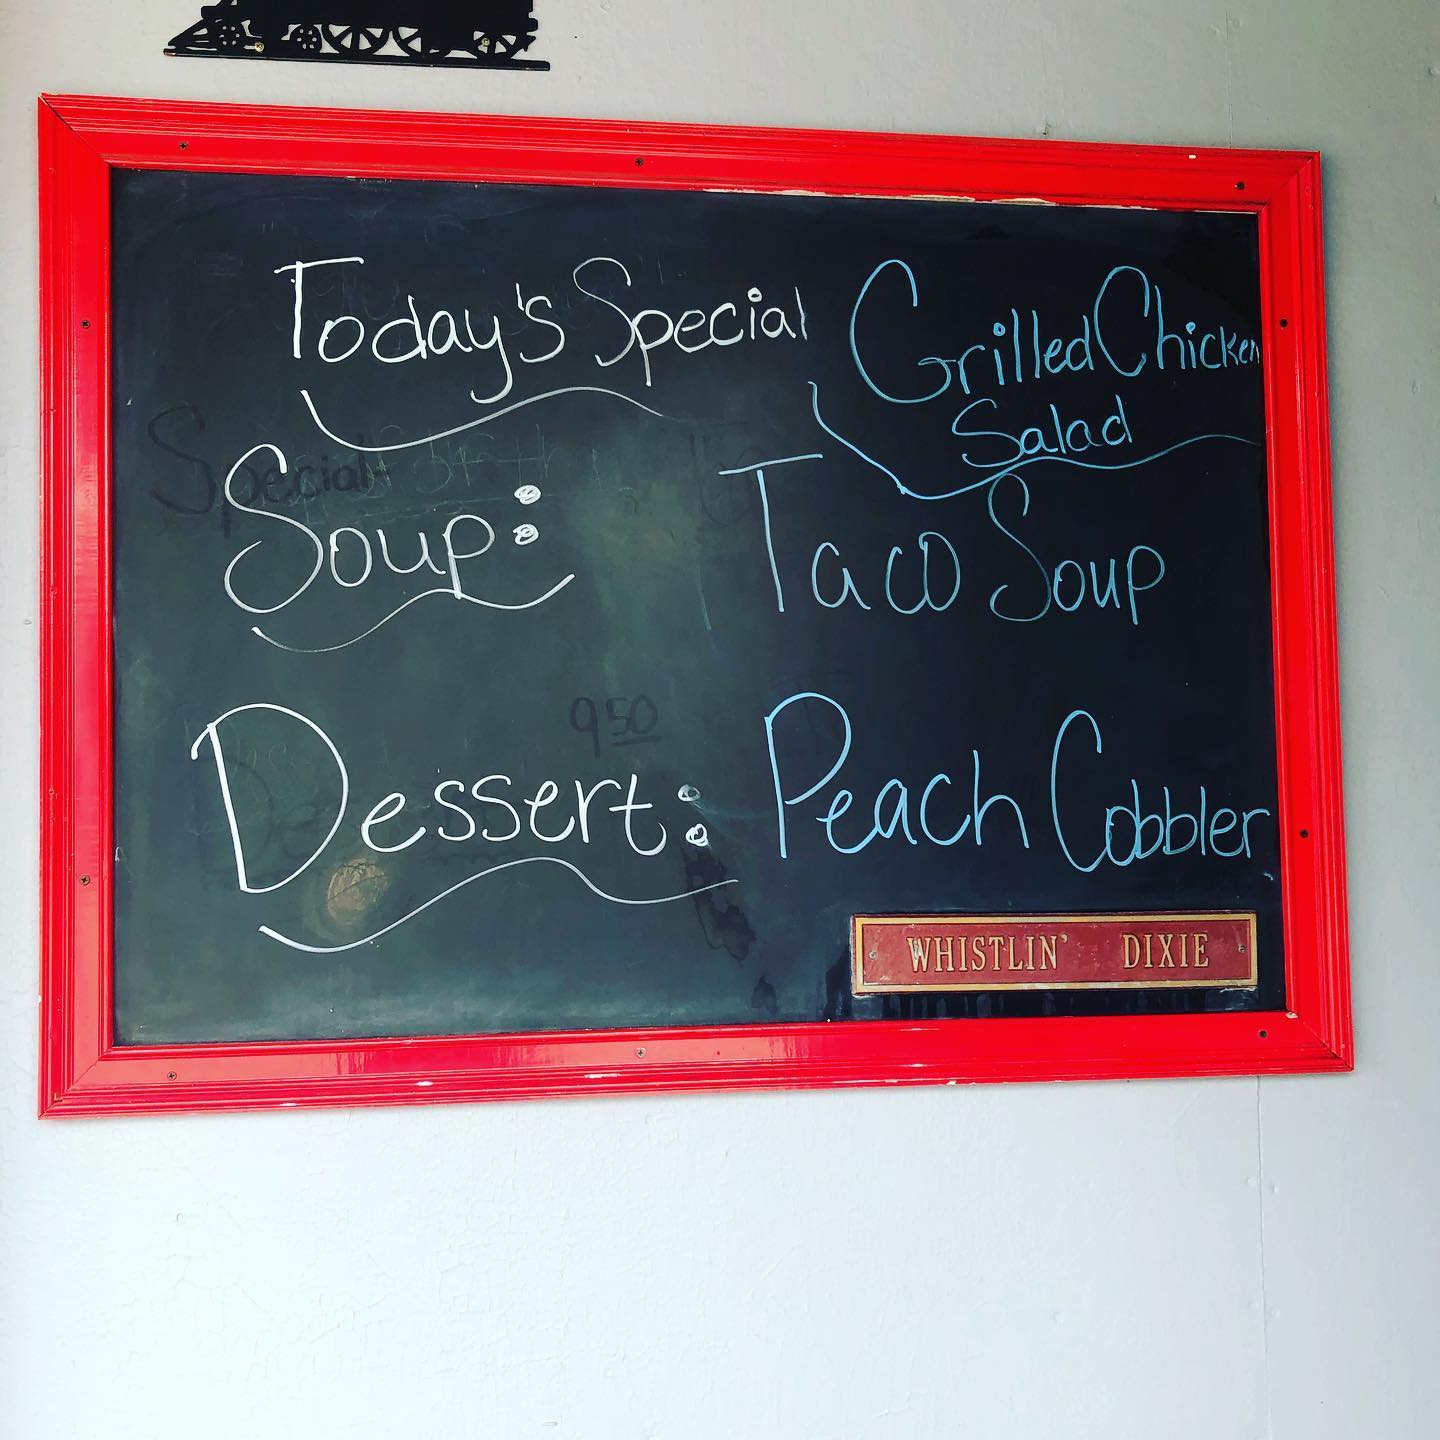 Today's Special Grilled Chicken
Salad
Special
Soup: Taco Soup
9 50
Dessert: Peach Cobbler
WHISTLIN' DIXIE